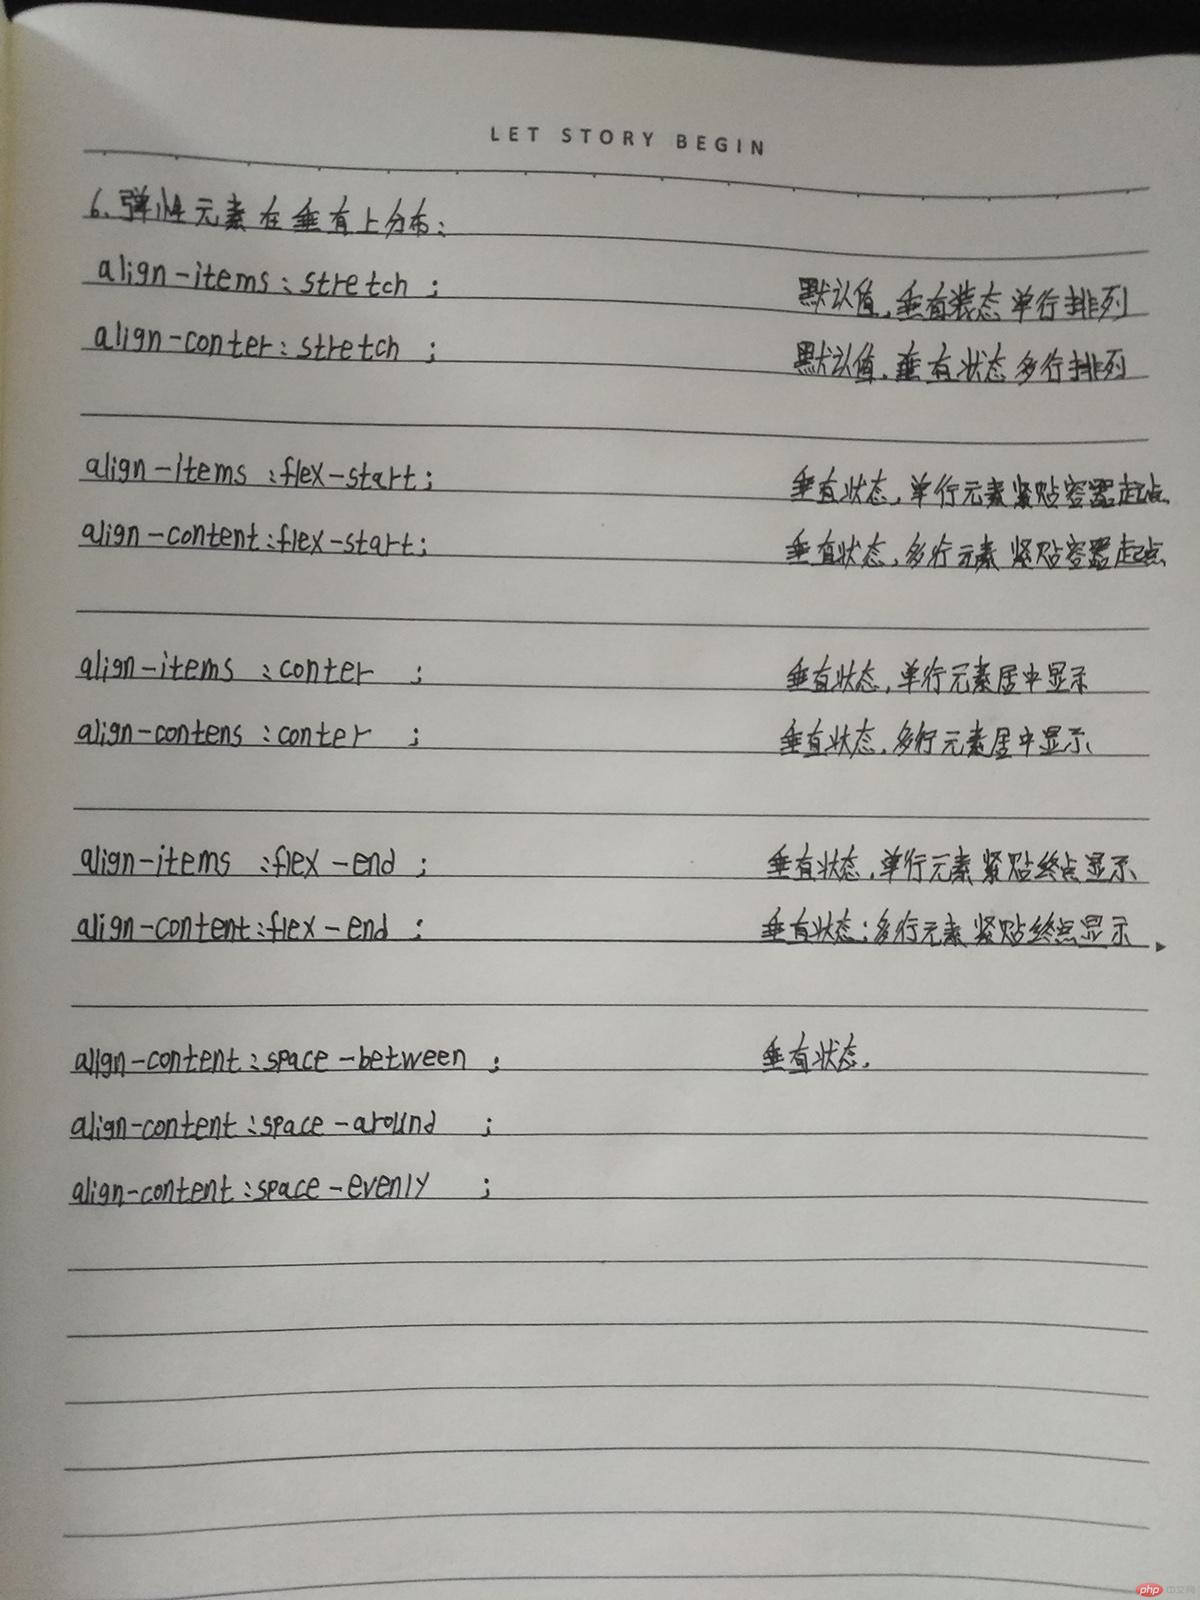 LET STORY BEGIN
6、弹性元素在垂直上分布：
align-items：stretch； 默认值，垂直装态单行排列
align-conter：stretch； 默认值，垂直状态多行排列
align-items：flex-start； 垂直状态，单行元素紧贴容器起点、
align-content：flex-start； 垂直状态，多行元素紧贴容器起点、
align-items：conter； 垂直状态，单行元素居中显示
align-contens：conter； 垂直状态，多行元素居中显示、
align-items：flex-end； 垂直状态，单行元素紧贴终点显示、
align-content：flex-end； 垂直状态：多行元素紧贴终点显示
align-content：space-between； 垂直状态，
align-content：space-around；
align-content：space-evenly；
php 中文网